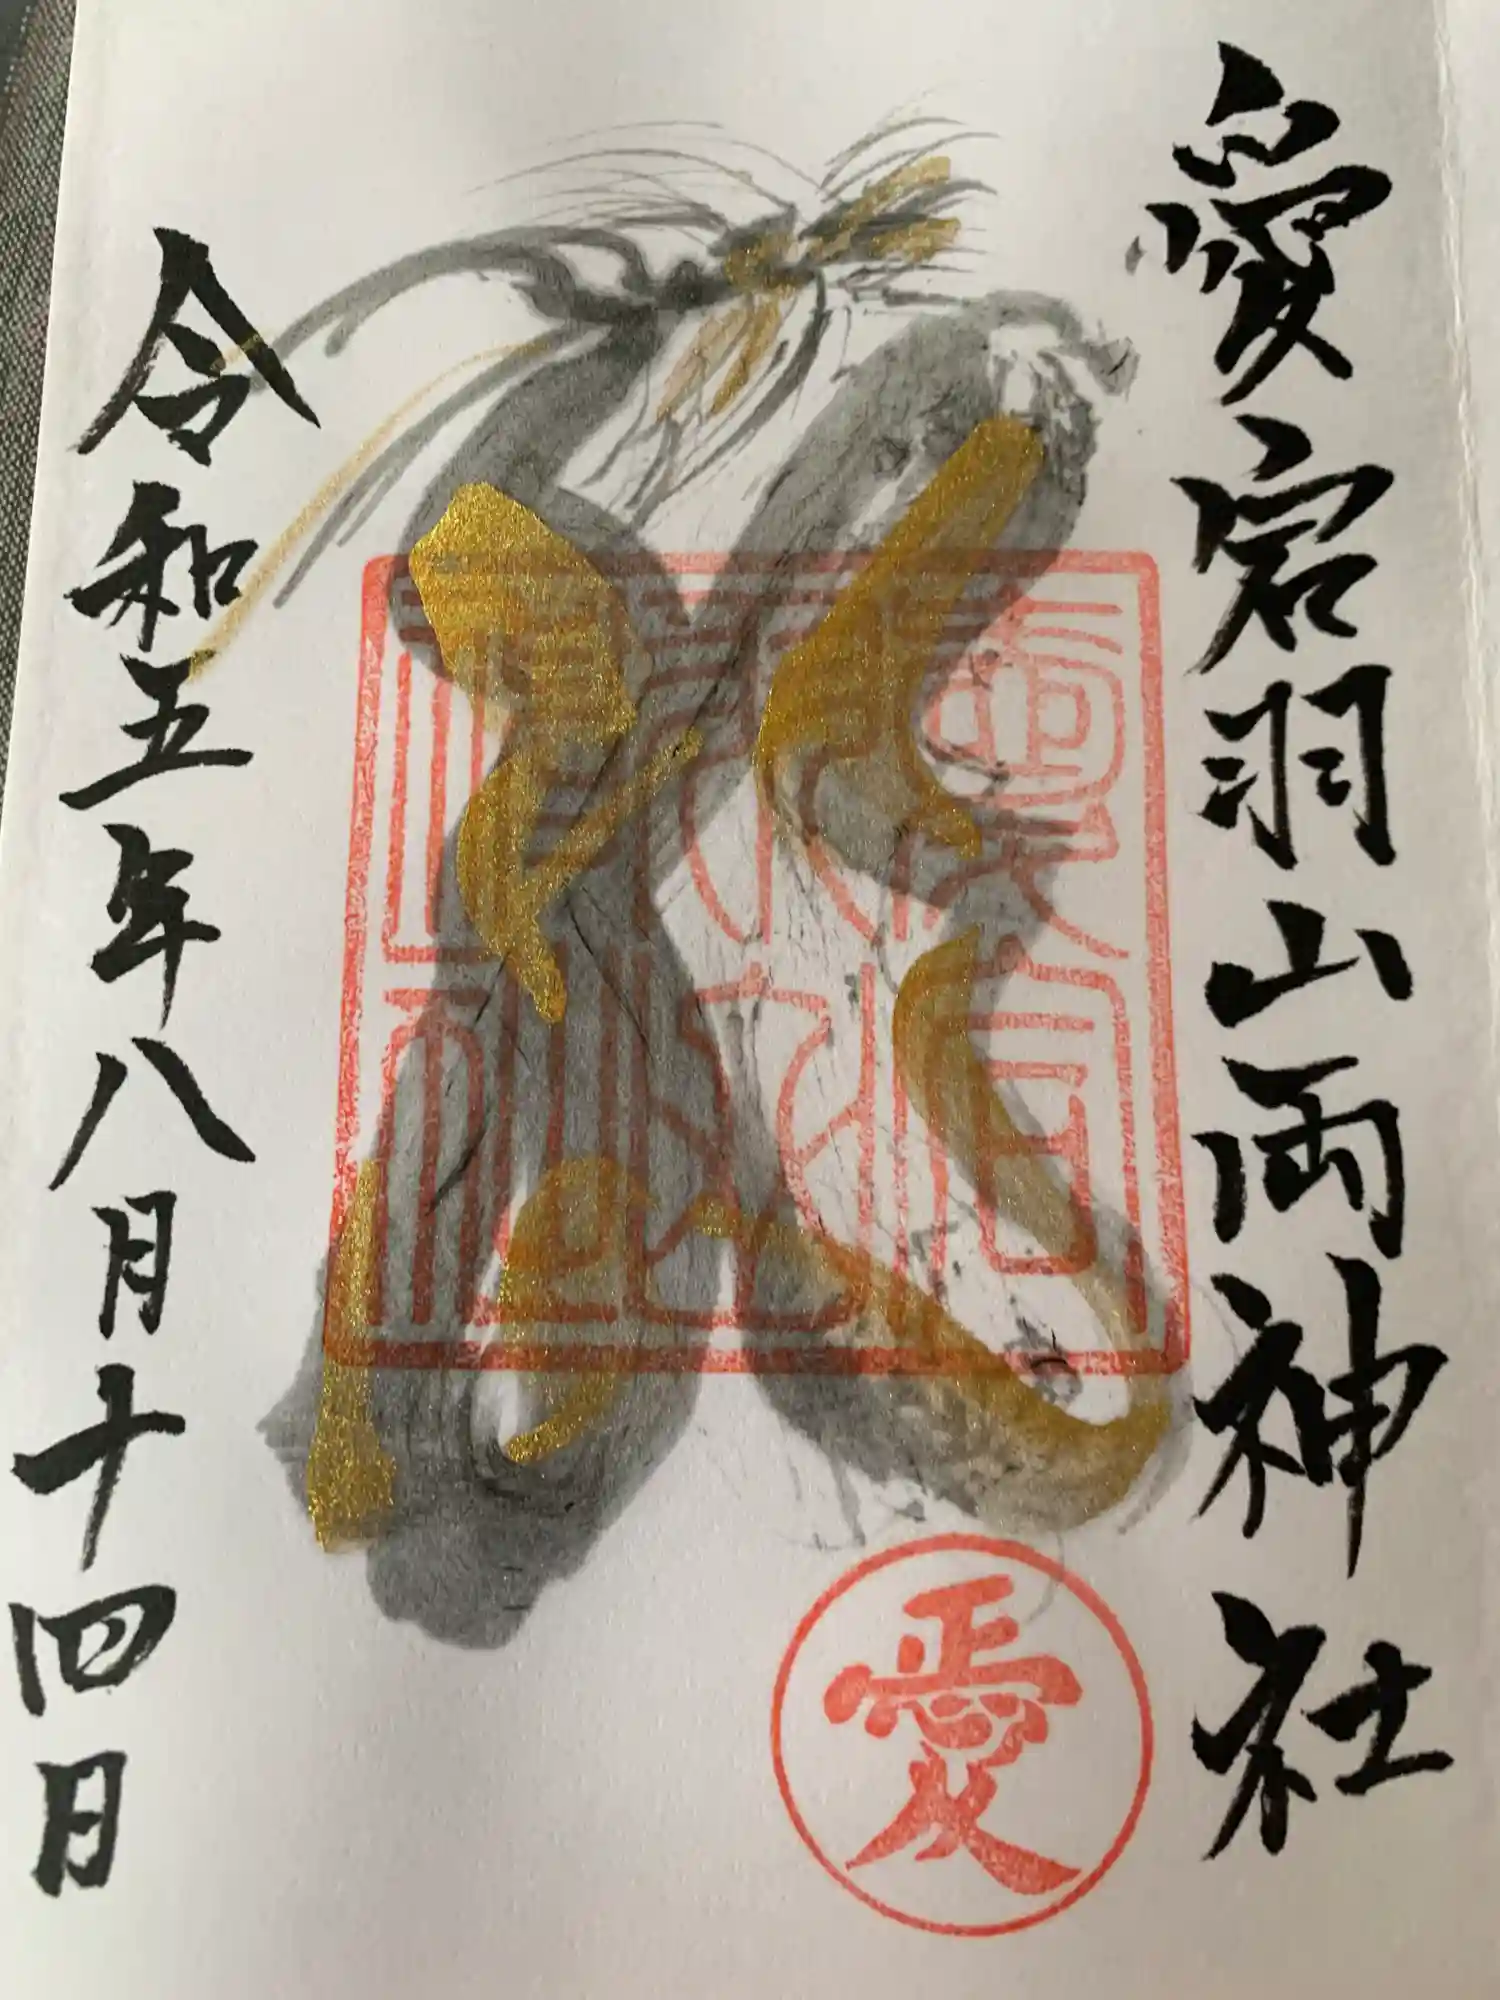 愛宕羽山両神社
愛
令和五年八月十四日